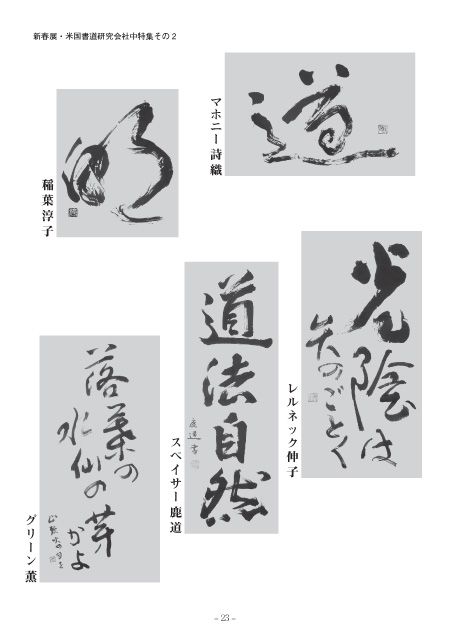 新春展・米国書道研究会社中特集その２
道
マホニー詩織
明
稲葉淳子
光陰は
矢のごとく
レルネック伸子
道法自然
鹿道書
スペイサー鹿道
落葉の
水仙の芽
かよ
グリーン薫
- 23 -